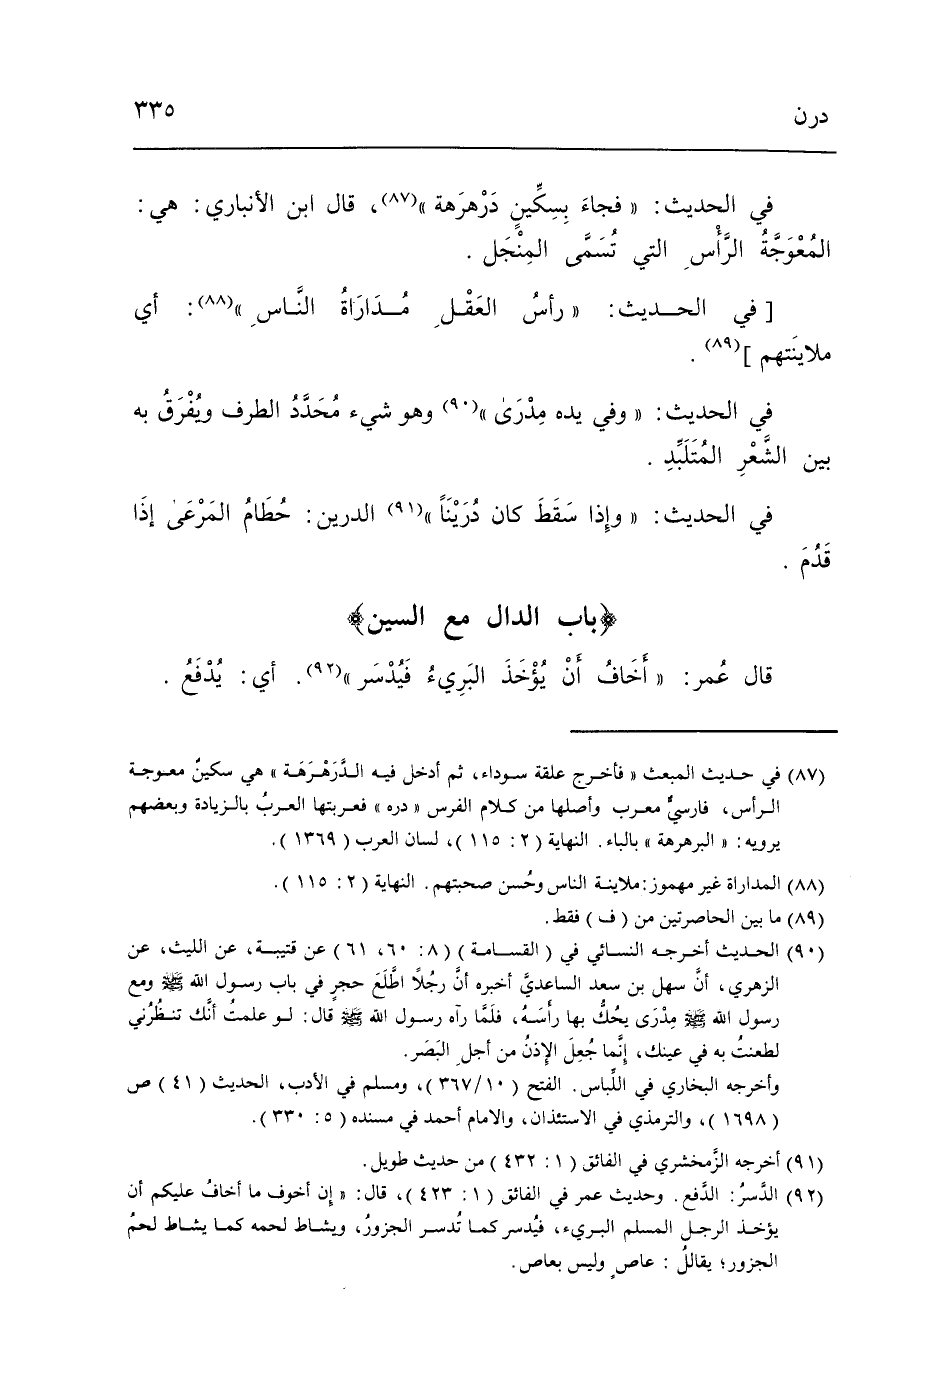 درن ٣٣٥
في الحديث: « فجاءَ بِسِكِّينٍ دَرْهرَهة »(٨٧)، قال ابن الأنباري: هي:
المُعْوَجَّةُ الرَّأْسِ التي تُسَمَّى المِنْجَل .
[ في الحــديث: « رأسُ العَقْــلِ مُــدَارَاةُ النَّــاسِ »(٨٨): أي
ملاينَتهم ](٨٩) .
في الحديث: « وفي يده مِدْرَىٰ »(٩٠) وهو شيء مُحَدَّدُ الطرف ويُفْرَقُ به
بين الشَّعْرِ المُتَلَبِّدِ .
في الحديث: « وإِذا سَقَطَ كان دُرَيْنَاً »(٩١) الدرين: حُطَامُ المَرْعَىٰ إذَا
قَدُمَ .
﴿باب الدال مع السين﴾
قال عُمر: « أَخَافُ أَنْ يُؤْخَذَ البَرِيءُ فَيُدْسَر »(٩٢). أي: يُدْفَعُ .
(٨٧) في حديث المبعث « فأخرج علقة سوداء، ثم أدخل فيه الدَّرَهْرَهَة » هي سكينٌ معوجة
الرأس، فارسيٌّ معرب وأصلها من كلام الفرس « دره » فعربتها العربُ بالزيادة وبعضهم
يرويه: « البرهرهة » بالباء. النهاية ( ٢: ١١٥ )، لسان العرب ( ١٣٦٩ ).
(٨٨) المداراة غير مهموز: ملاينة الناس وحُسن صحبتهم. النهاية ( ٢: ١١٥ ).
(٨٩) ما بين الحاصرتين من ( ف ) فقط.
(٩٠) الحديث أخرجه النسائي في ( القسامة ) ( ٨: ٦٠، ٦١ ) عن قتيبة، عن الليث، عن
الزهري، أنَّ سهل بن سعد الساعديَّ أخبره أنَّ رجُلًا اطَّلَعَ حجرٍ في باب رسول الله ﷺ ومع
رسول الله ﷺ مِدْرَى يحُكُّ بها رأسَهُ، فَلَمَّا رآه رسول الله ﷺ قال: لو علمتُ أنَّك تنظُرُني
لطعنتُ به في عينك، إِنَّما جُعِلَ الإذنُ من أجلِ البَصَر.
وأخرجه البخاري في اللِّباس. الفتح ( ٣٦٧/١٠ )، ومسلم في الأدب، الحديث ( ٤١ ) ص
( ١٦٩٨ )، والترمذي في الاستئذان، والامام أحمد في مسنده ( ٥: ٣٣٠ ).
(٩١) أخرجه الزَّمخشري في الفائق ( ١: ٤٣٢ ) من حديث طويل.
(٩٢) الدَّسرُ: الدَّفع. وحديث عمر في الفائق ( ١: ٤٢٣ )، قال: « إن أخوف ما أخافُ عليكم أن
يؤخذ الرجل المسلم البريء، فيُدسر كما تُدسر الجزورُ، ويشاط لحمه كما يشاط لحمُ
الجزور؛ يقاللُ : عاصٍ وليس بعاص.